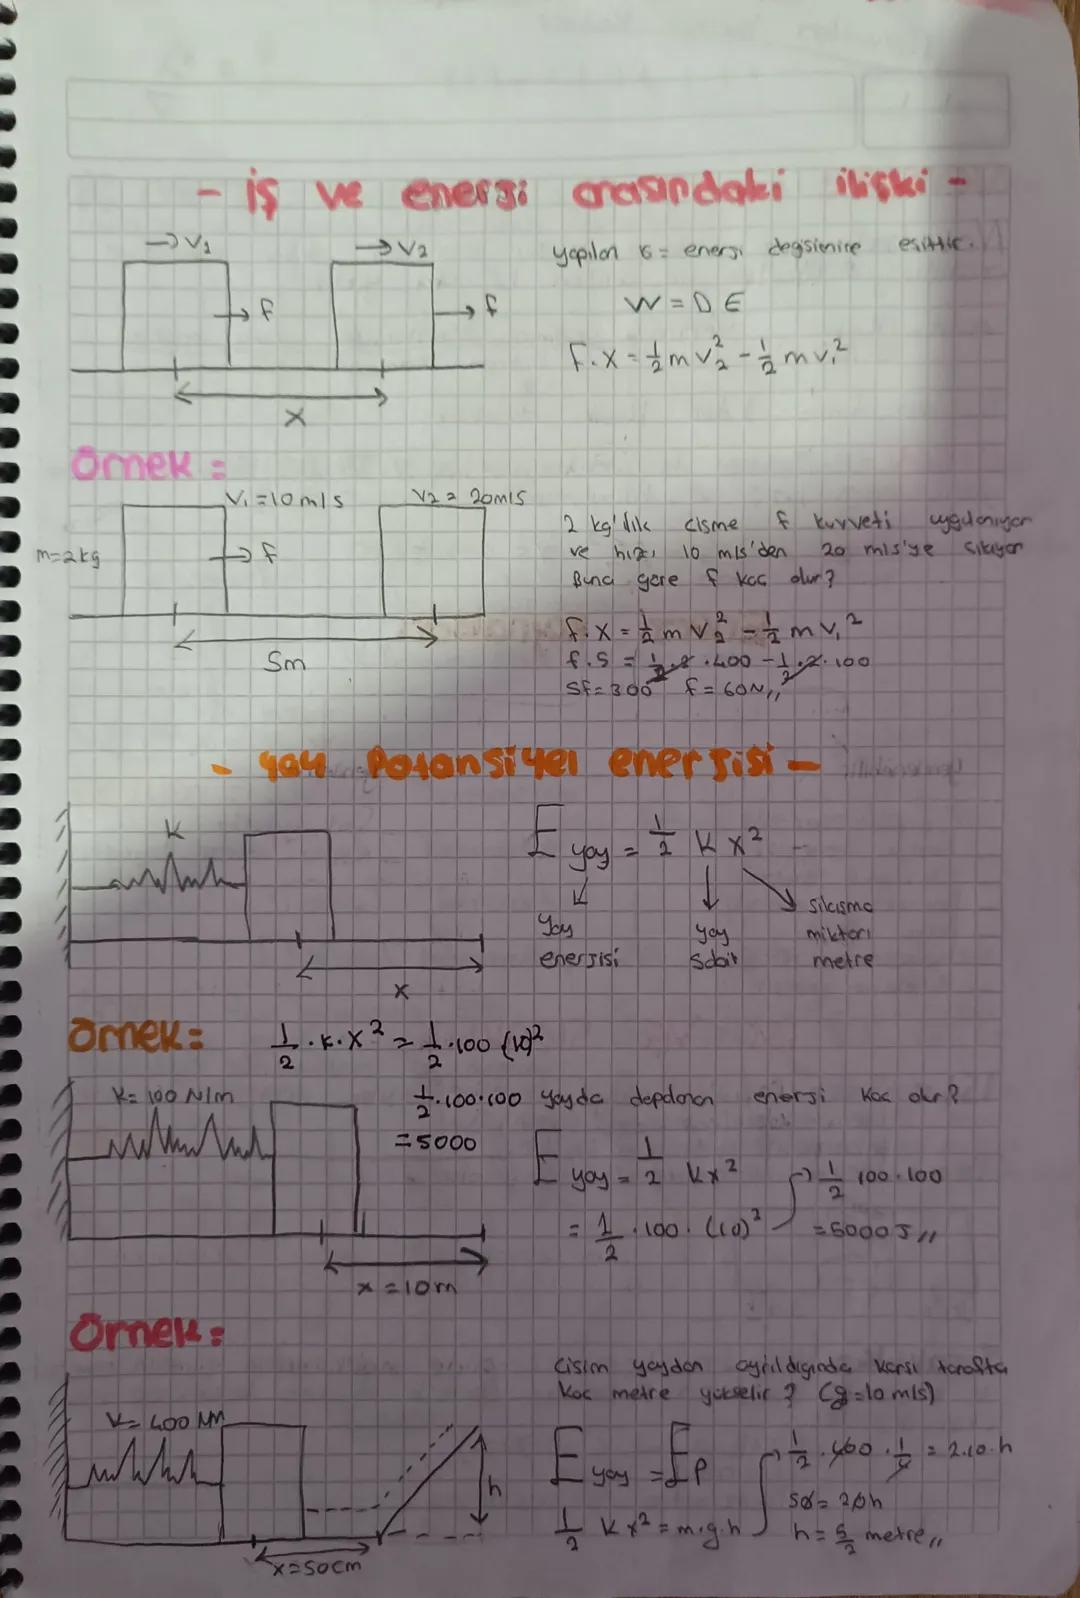 - iş ve enerji arasındaki ilişki -
→V₁ →V₂
yapılan iş = enerji değişimine eşittir.
f f
W = D E
f.x = 1/2 m v₂² - 1/2 m v₁²
x
Örnek =
V₁ = 10 m/s V₂ = 20 m/s
m=2kg
f
2 kg'lık cisme f kuvveti uygulanıyor
ve hızı 10 m/s'den 20 m/s'ye çıkıyor
Buna göre f kaç olur?
5m
f.x = 1/2 m v₂² - 1/2 m v₁²
f.5 = 1/2.2.400 - 1/2.2.100
5f=300 f=60N,,
- yay Potansiyel enerjisi -
K
E yay = 1/2 K x²
yay enerjisi
yay sabit
sıkışma miktarı metre
x
Örnek=
1/2 . k . x² = 1/2 .100 (10)²
1/2.100.100
=5000
K= 100 N/m
yayda depolanan enerji kaç olur?
E yay = 1/2 kx²
= 1/2 .100. (10)²
1/2 100.100
=5000J,,
x=10m
Örnek=
Cisim yaydan ayrıldığında karşı tarafta
kaç metre yükselir? (g=10 m/s)
K=400 N/m
E yay = Ep
1/2 K x² = m.g.h
1/2 .400 . 1/4 = 2.10.h
50= 20h
h= 5/2 metre,,
h
x=50cm